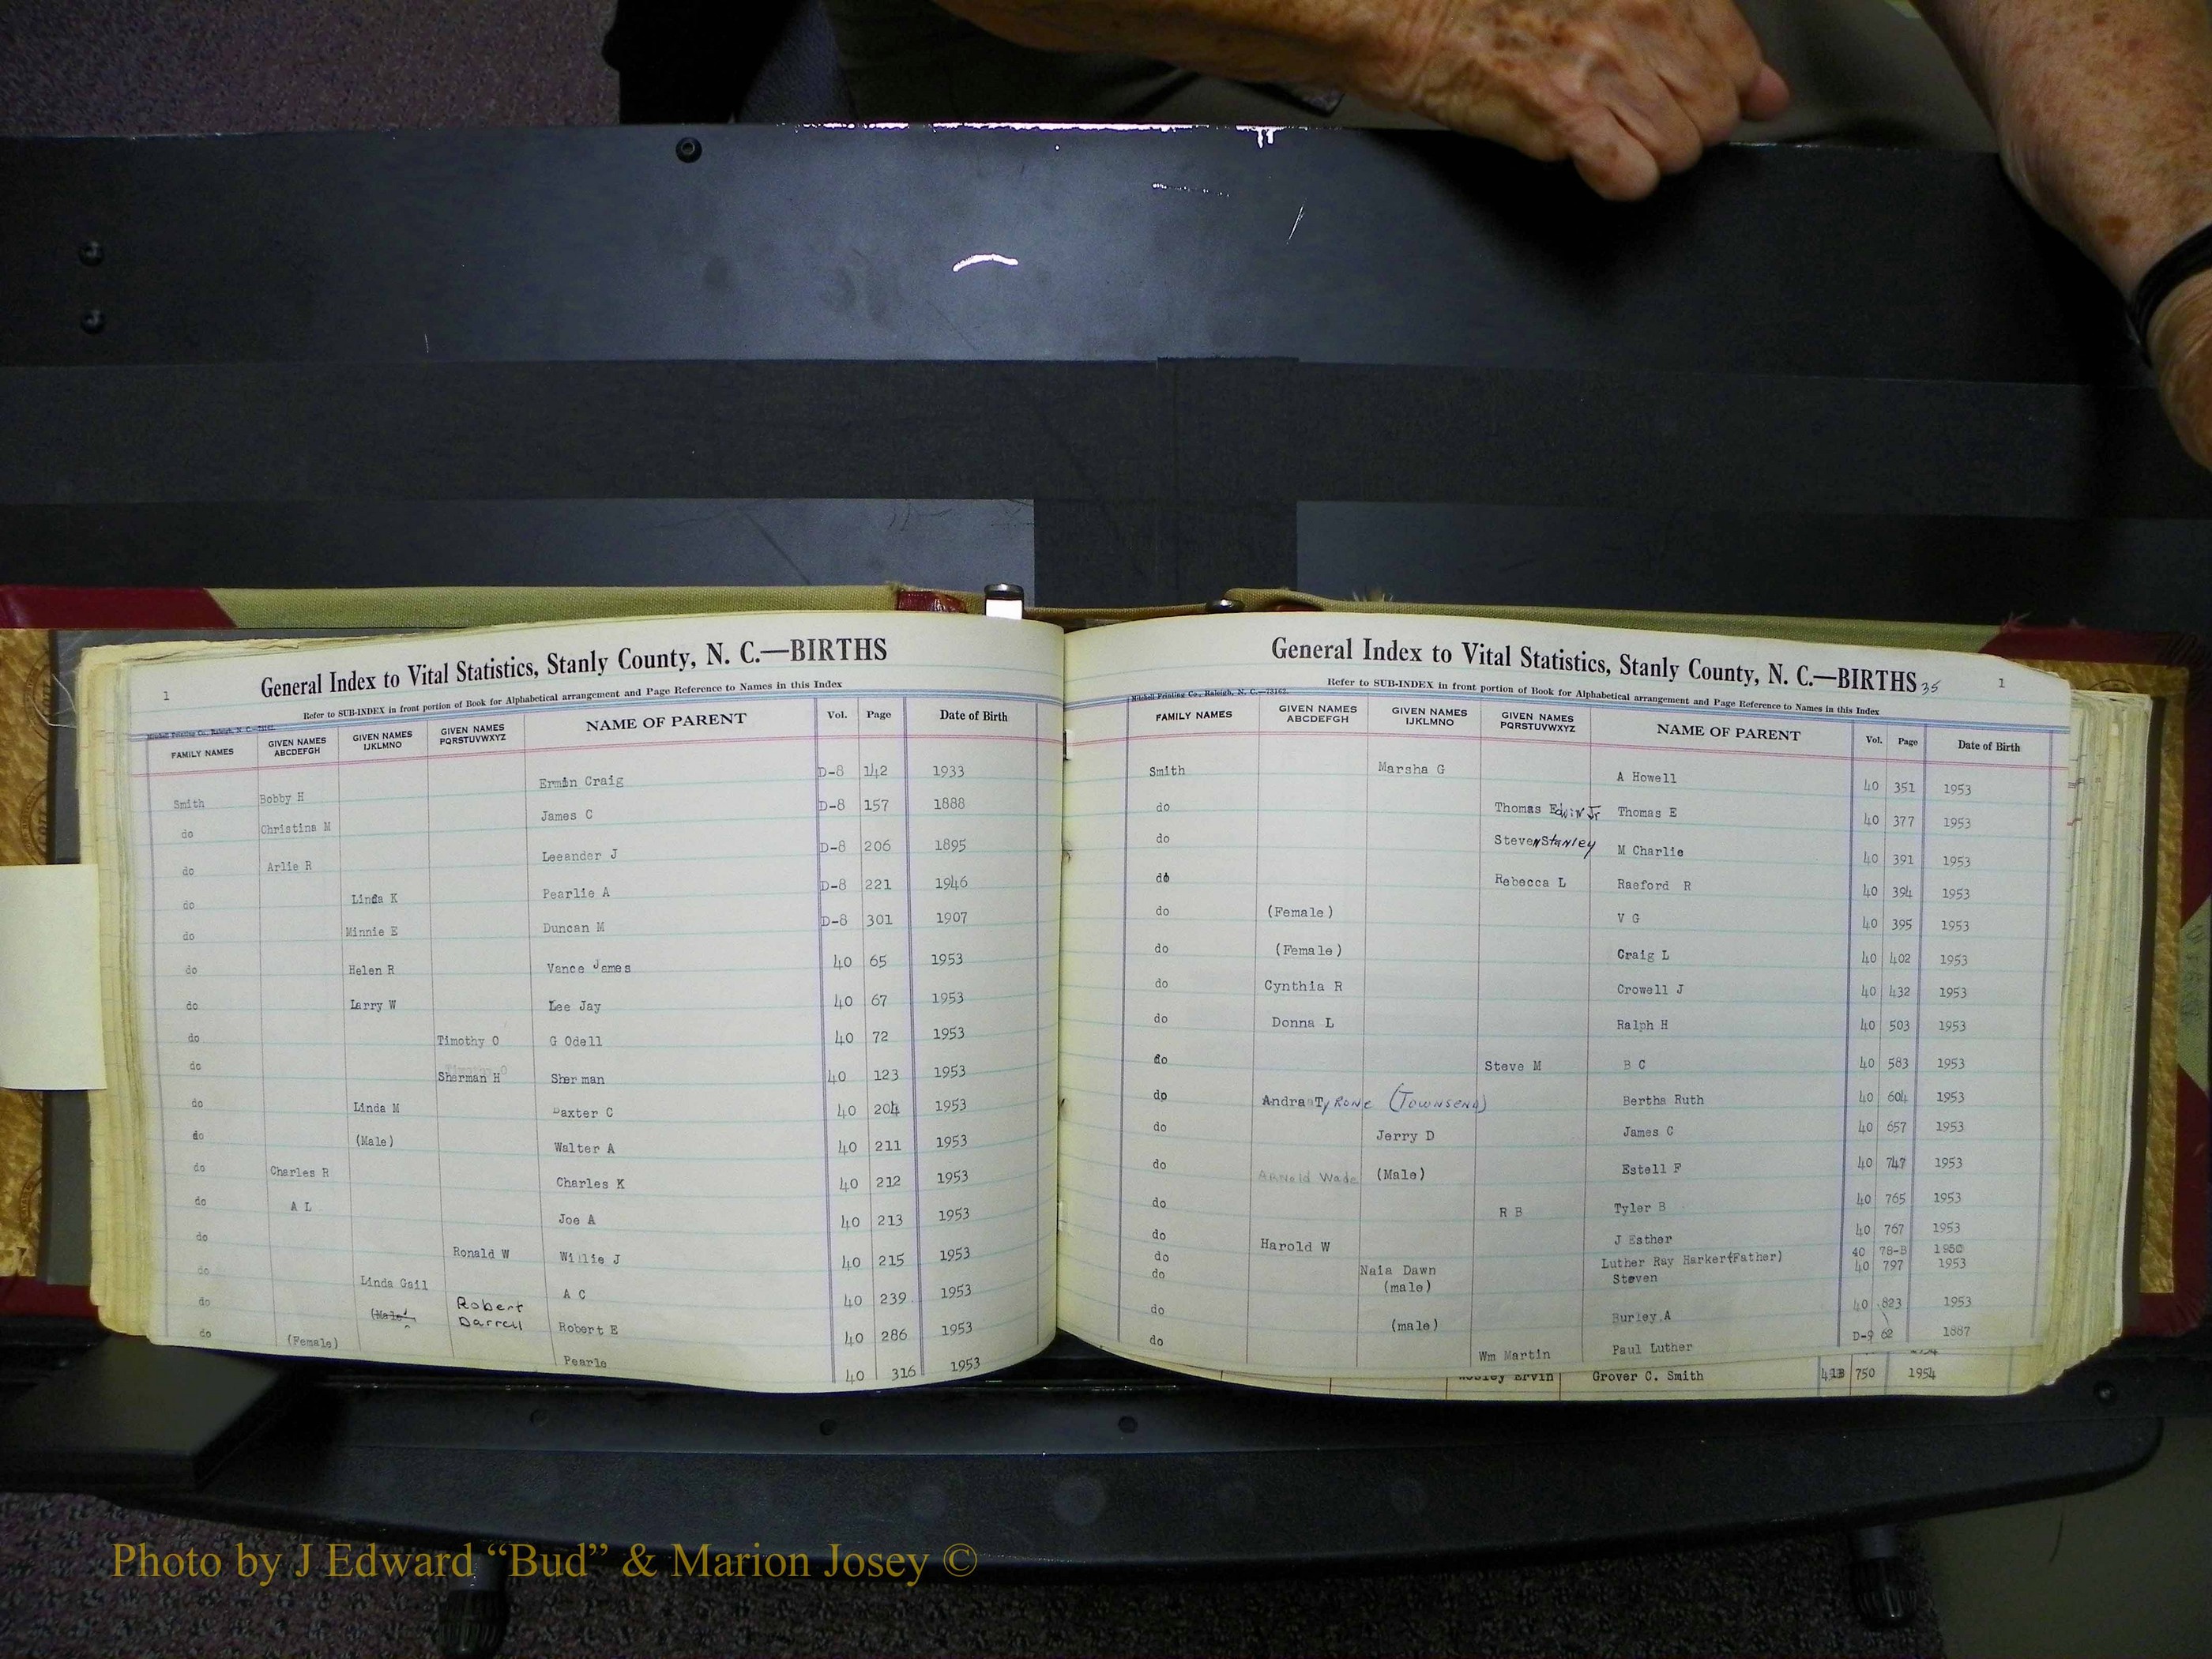 General Index to Vital Statistics, Stanly County, N. C.—BIRTHS
1
Refer to SUB-INDEX in front portion of Book for Alphabetical arrangement and Page Reference to Names in this Index
Mitchell Printing Co., Raleigh, N. C.
FAMILY NAMES GIVEN NAMES ABCDEFGH GIVEN NAMES IJKLMNO GIVEN NAMES PQRSTUVWXYZ NAME OF PARENT Vol. Page Date of Birth
Smith Bobby H Ermin Craig D-8 142 1933
do Christina M James C D-8 157 1888
do Arlie R Leeander J D-8 206 1895
do Linda K Pearlie A D-8 221 1946
do Minnie E Duncan M D-8 301 1907
do Helen R Vance James 40 65 1953
do Larry W Lee Jay 40 67 1953
do Timothy O G Odell 40 72 1953
do Sherman H Sherman 40 123 1953
do Linda M Daxter C 40 204 1953
do (Male) Walter A 40 211 1953
do Charles R Charles K 40 212 1953
do A L Joe A 40 213 1953
do Ronald W Willie J 40 215 1953
do Linda Gail A C 40 239 1953
do (Male) Robert Darrell Robert E 40 286 1953
do (Female) Pearle 40 316 1953
General Index to Vital Statistics, Stanly County, N. C.—BIRTHS 35
1
Refer to SUB-INDEX in front portion of Book for Alphabetical arrangement and Page Reference to Names in this Index
Mitchell Printing Co., Raleigh, N. C.—73162.
FAMILY NAMES GIVEN NAMES ABCDEFGH GIVEN NAMES IJKLMNO GIVEN NAMES PQRSTUVWXYZ NAME OF PARENT Vol. Page Date of Birth
Smith Marsha G A Howell 40 351 1953
do Thomas Edwin Jr Thomas E 40 377 1953
do Steven Stanley M Charlie 40 391 1953
do Rebecca L Raeford R 40 394 1953
do (Female) V G 40 395 1953
do (Female) Craig L 40 402 1953
do Cynthia R Crowell J 40 432 1953
do Donna L Ralph H 40 503 1953
do Steve M B C 40 583 1953
do Andra Tyrone (Townsend) Bertha Ruth 40 604 1953
do Jerry D James C 40 657 1953
do Arnold Wade (Male) Estell F 40 747 1953
do R B Tyler B 40 765 1953
do Harold W J Esther 40 767 1953
do Naia Dawn Luther Ray Harker(Father) 40 78-B 1950
do (male) Steven 40 797 1953
do (male) Burley A 40 823 1953
do Wm Martin Paul Luther D-9 62 1887
Ervin Grover C. Smith 750 1954
Photo by J Edward “Bud” & Marion Josey ©